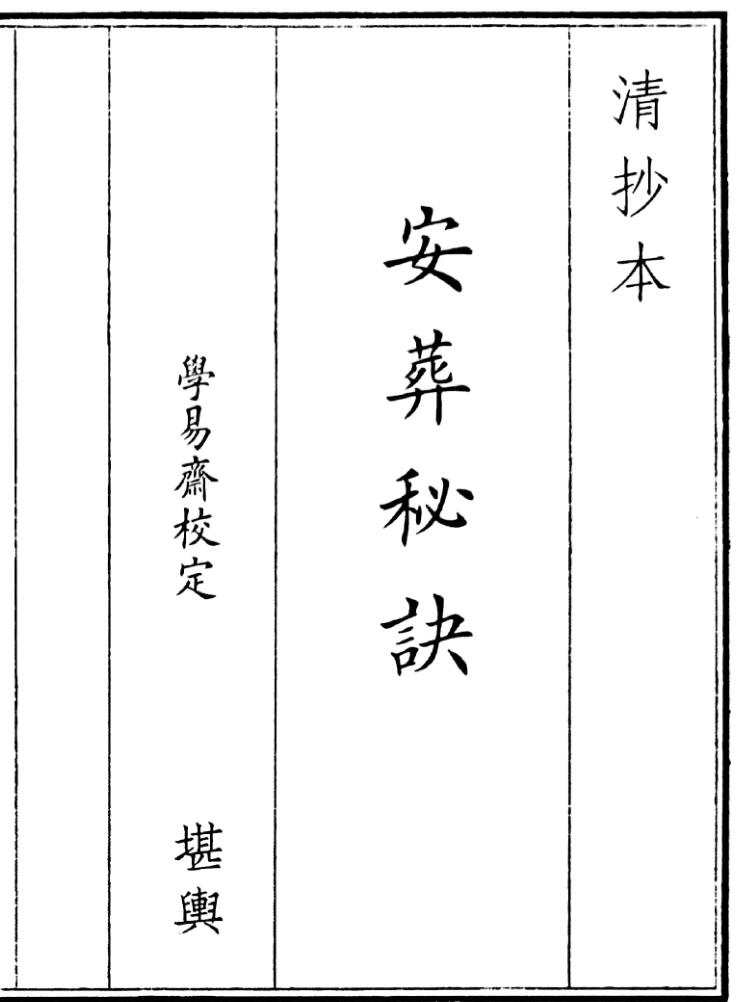 清抄本
安葬秘訣
學易齋校定
堪輿